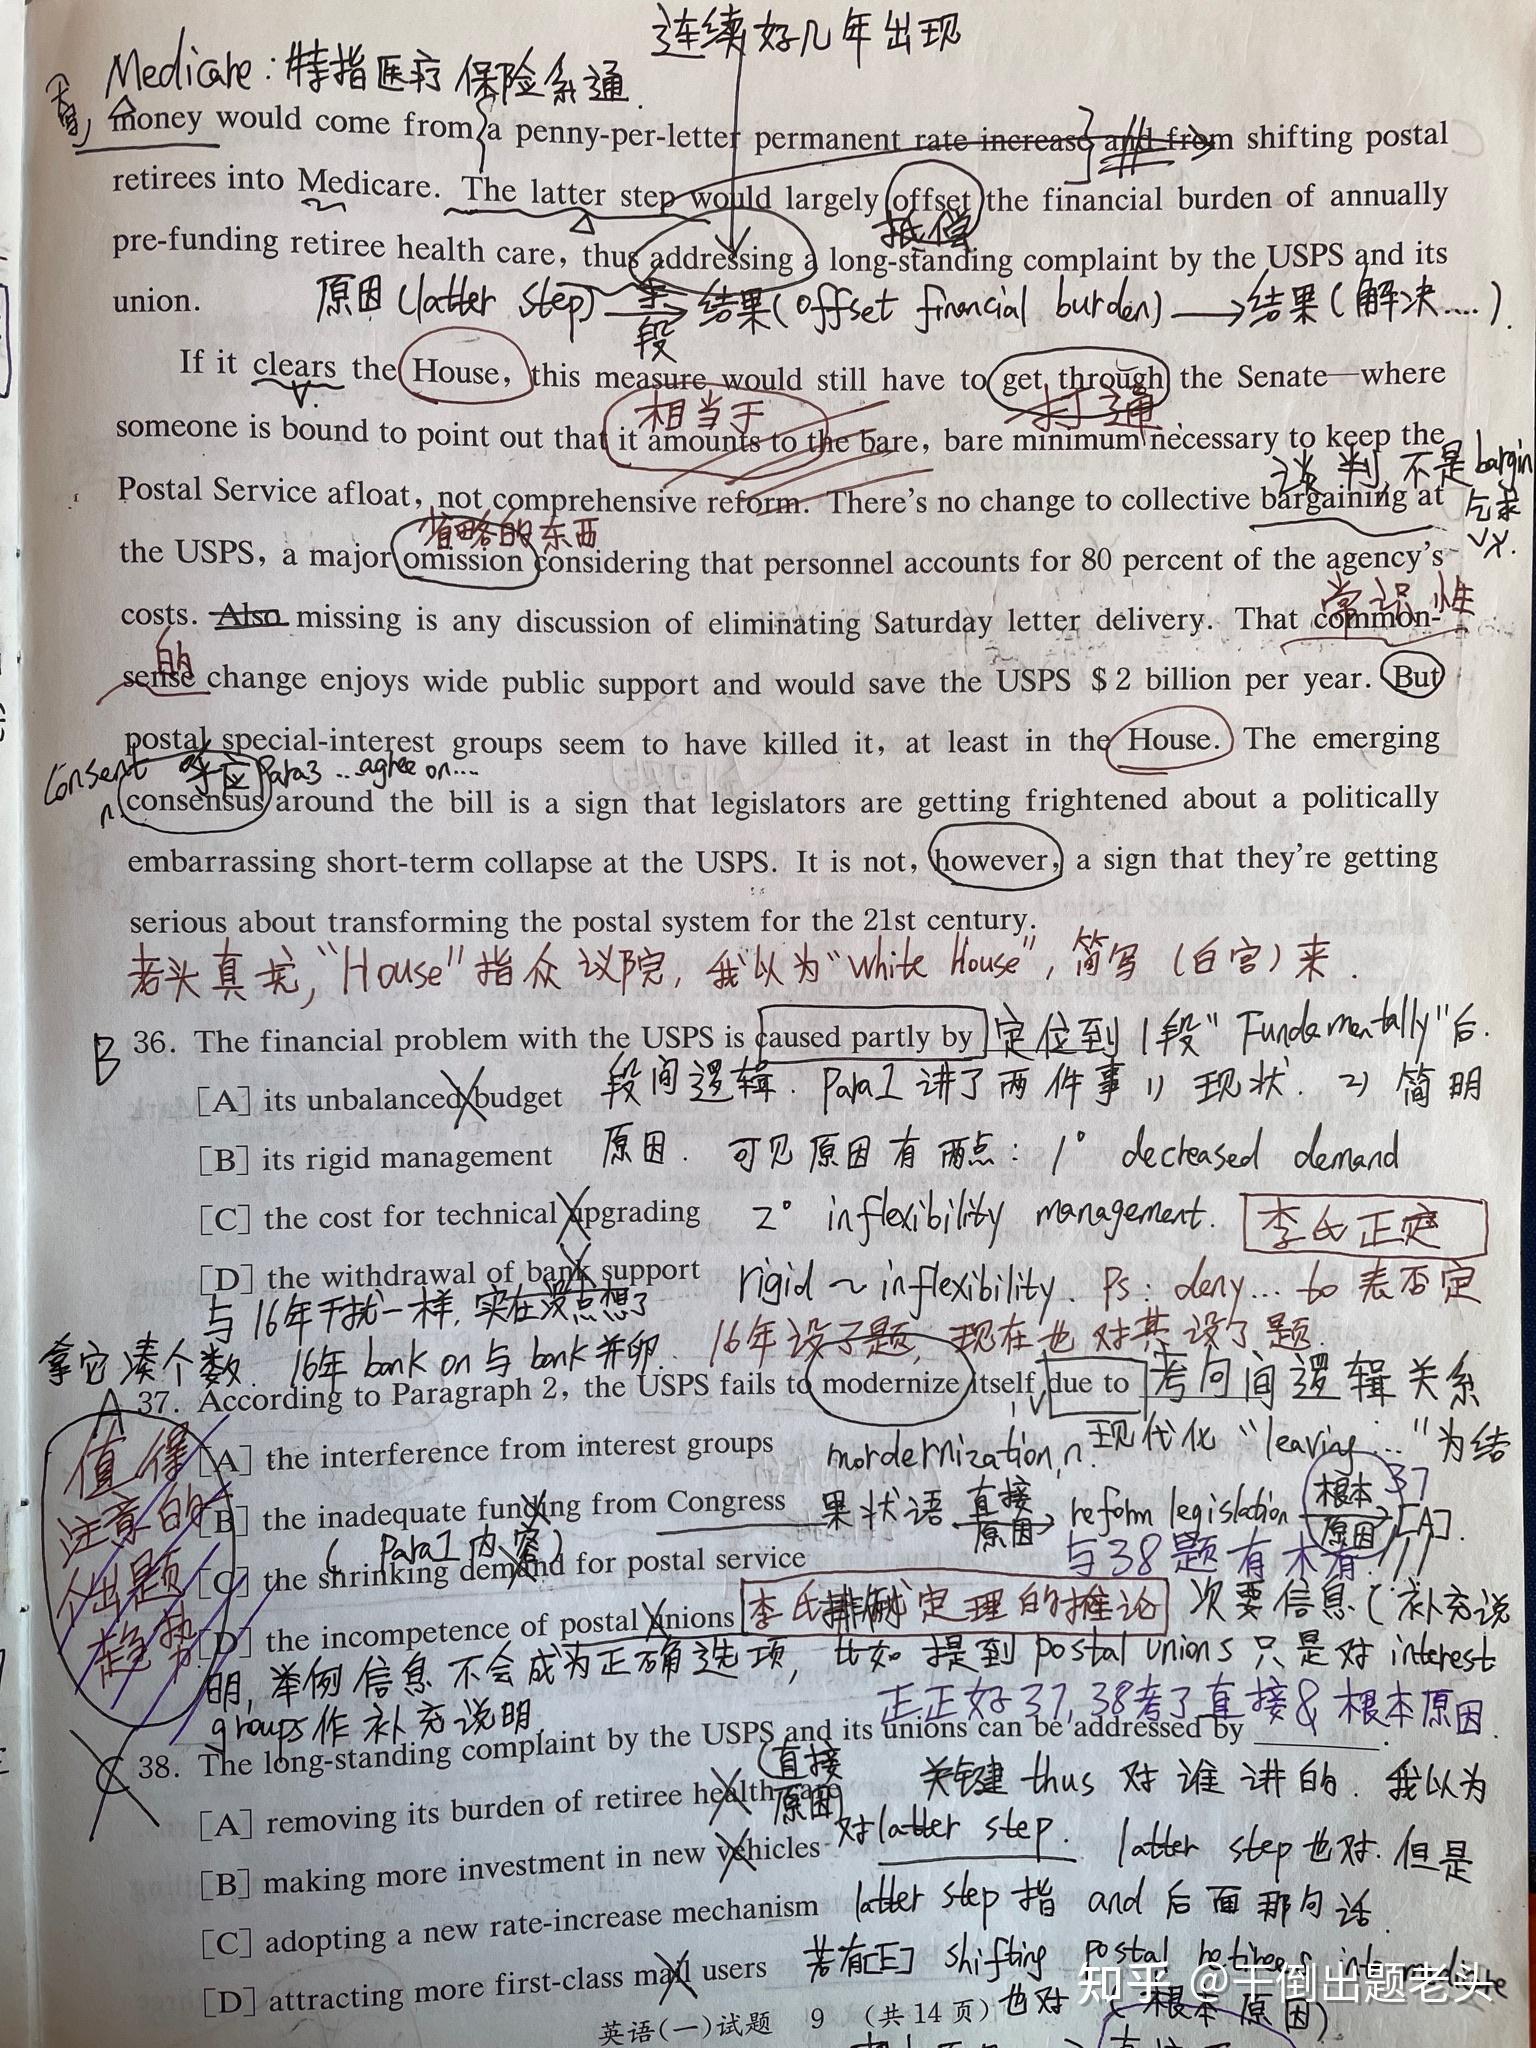 连续好几年出现
Medicare：特指医疗保险系通.
money would come from a penny-per-letter permanent rate increase and from shifting postal
retirees into Medicare. The latter step would largely offset the financial burden of annually
抵偿
pre-funding retiree health care, thus addressing a long-standing complaint by the USPS and its
union.
原因(latter step) → 结果(offset financial burden) → 结果(解决....).
段
If it clears the House, this measure would still have to get through the Senate—where
相当于 打通
someone is bound to point out that it amounts to the bare, bare minimum necessary to keep the
谈判,不是bargin
Postal Service afloat, not comprehensive reform. There's no change to collective bargaining at
乞求
省略的东西
the USPS, a major omission considering that personnel accounts for 80 percent of the agency's
常识性
costs. Also missing is any discussion of eliminating Saturday letter delivery. That common-
的
sense change enjoys wide public support and would save the USPS $2 billion per year. But
postal special-interest groups seem to have killed it, at least in the House. The emerging
Consent 呼应Para3 ...agree on...
n. consensus around the bill is a sign that legislators are getting frightened about a politically
embarrassing short-term collapse at the USPS. It is not, however, a sign that they're getting
serious about transforming the postal system for the 21st century.
老头真坑,“House”指众议院,我以为“White House”,简写(白宫)来.
B 36. The financial problem with the USPS is caused partly by 定位到1段“Fundamentally”后.
[A] its unbalanced budget 段间逻辑. Para1讲了两件事 1) 现状. 2) 简明
[B] its rigid management 原因. 可见原因有两点: 1° decreased demand
[C] the cost for technical upgrading 2° inflexibility management. 李氏正定
[D] the withdrawal of bank support rigid ~ inflexibility. Ps: deny... to 表否定
与16年干扰一样,实在没点想了
16年设了题,现在也对其设了题.
拿它凑个数. 16年bank on与bank并卵.
A 37. According to Paragraph 2, the USPS fails to modernize itself due to 考句间逻辑关系
[A] the interference from interest groups mordernization,n.现代化 “leaving...”为结
值得注意的个出题趋势
[B] the inadequate funding from Congress 果状语 直接原因→ reform legislation 根本原因→ [A].
37与38题有木有!!!
( Para1内容)
[C] the shrinking demand for postal service
[D] the incompetence of postal unions 李氏排除定理的推论 次要信息(补充说
明,举例信息不会成为正确选项,比如提到postal unions只是对interest
groups作补充说明.
正正好37,38考了直接&根本原因.
C 38. The long-standing complaint by the USPS and its unions can be addressed by ______.
(直接原因)
[A] removing its burden of retiree health care 关键thus对谁讲的. 我以为
对latter step. latter step也对.但是
[B] making more investment in new vehicles
[C] adopting a new rate-increase mechanism latter step指and后面那句话.
[D] attracting more first-class mail users 若有[E] shifting postal retirees into
也对 (根本原因)
知乎 @干倒出题老头
英语(一)试题 9 (共14页)